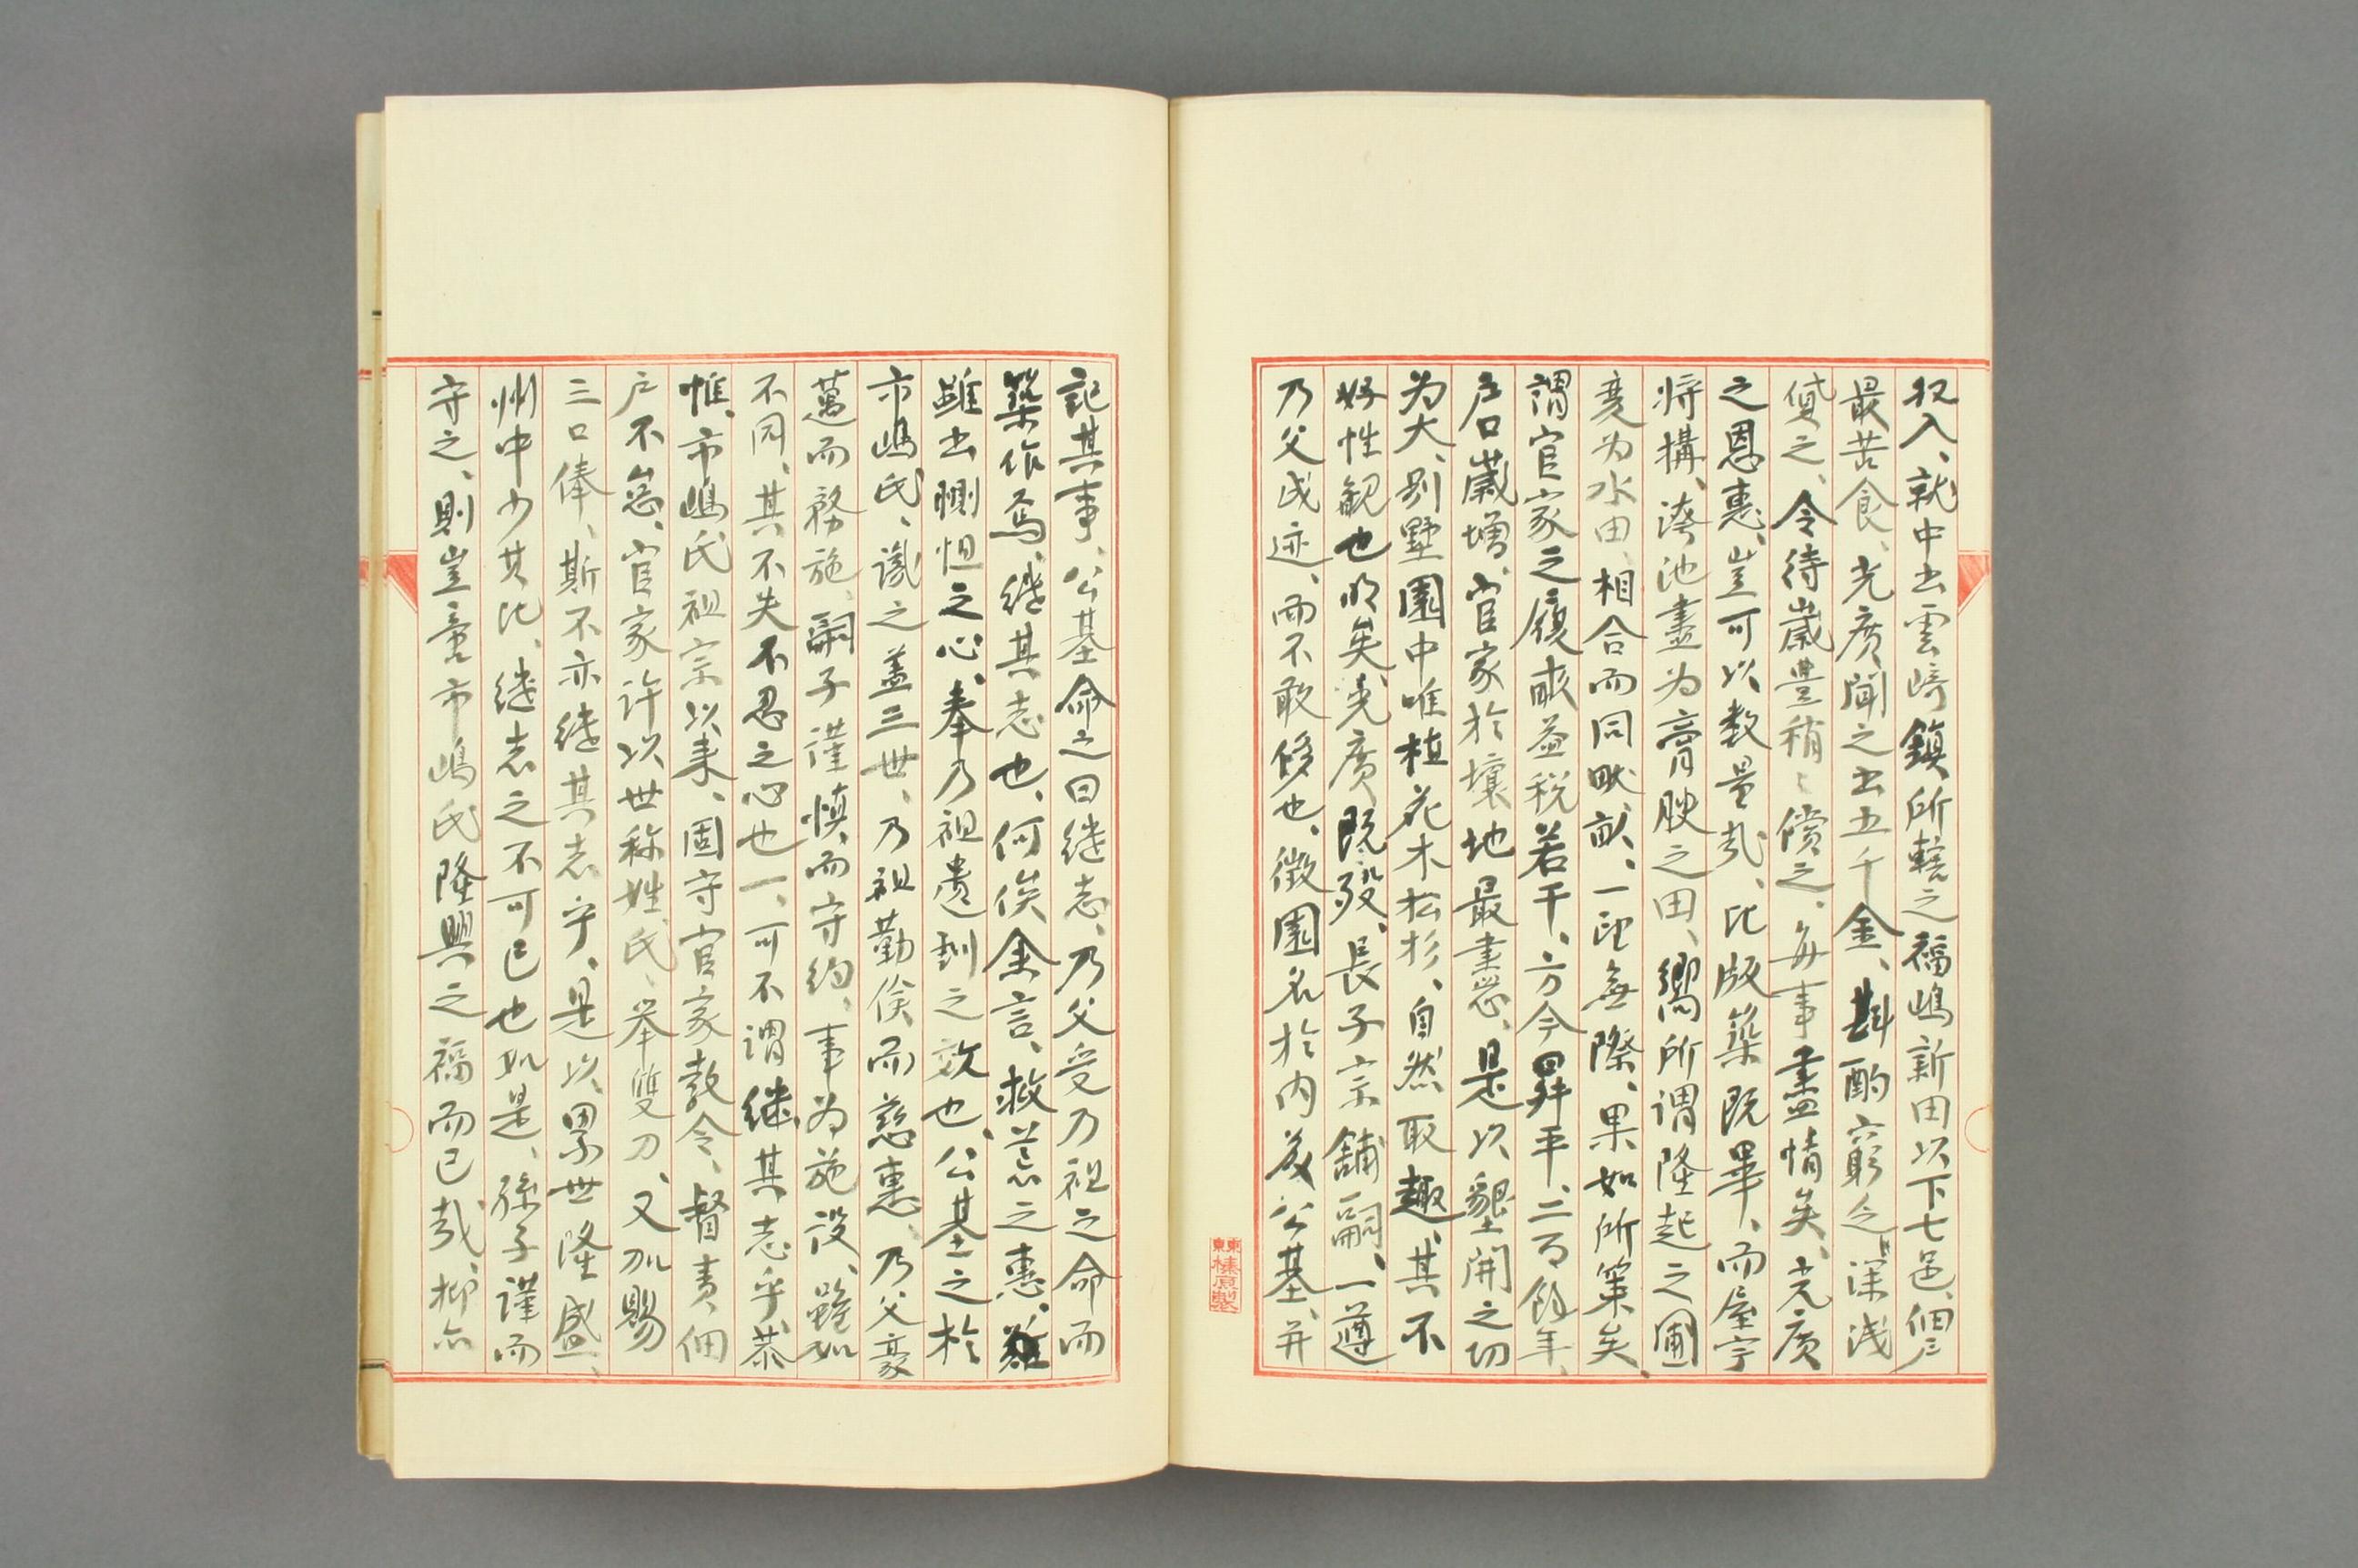 収入、就中出雲﨑鎮所轄之福嶋新田以下七邑、佃戸
最苦食、光廣聞之出五千金、斟酌窮乏深浅
貸之、令待歳豊稍々償之、毎事盡情矣、光廣
之恩惠、豈可以数量哉、比版築既畢、而屋宇
将構、洿池盡為膏腴之田、嚮所謂隆起之圃
変為水田、相合而同畎畝、一望無際、果如所策矣、
謂官家之履畝益税若干、方今昇平、二百餘年、
戸口歳増、官家於壤地最盡、是以墾開之功
為大、別墅園中唯植花木松杉、自然取趣、其不
好性観也明矣、光廣既歿、長子宗舖嗣、一遵
乃父成迹、而不敢侈也、徴園名於内藤公基、并
記其事、公基命之曰継志、乃父受乃祖之命而
築作焉、継其志也、何俟余言、救荒之惠、雖
雖出惻怛之心、奉乃祖遺訓之效也、公基之於
市嶋氏、識之蓋三世、乃祖勤倹而慈惠、乃父豪
邁而務施、嗣子謹慎而守約、事為施設、雖如
不同、其不失不忍之心也一、可不謂継其志乎、恭
惟、市嶋氏祖宗以来、固守官家教令、督責佃
戸不怠、官家許以世称姓氏、挙雙刀、又加賜
三口俸、斯不亦継其志乎、是以累世隆盛、
州中少其比、継志之不可已也如是、孫子謹而
守之、則豈啻市嶋氏隆興之福而已哉、抑亦
東京榛原製